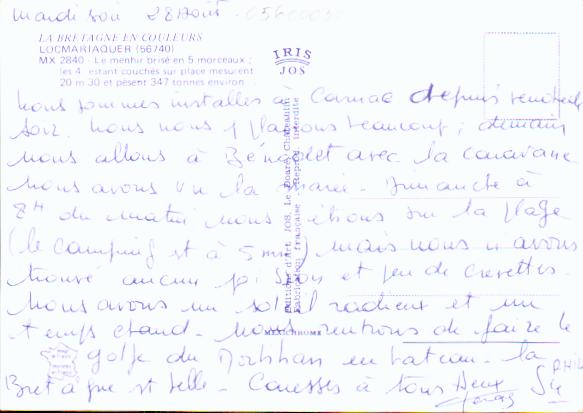 Mardi soir 28 Août.
LA BRETAGNE EN COULEURS
LOCMARIAQUER (56740)
MX 2840 - Le menhir brisé en 5 morceaux ;
les 4 restant couchés sur place mesurent
20 m 30 et pèsent 347 tonnes environ.
IRIS
JOS
Nous sommes installés à Carnac depuis vendredi
soir. Nous nous y plaisons beaucoup, demain
nous allons à Bénodet avec la caravane
nous avons vu la marée. Dimanche à
8H du matin nous étions sur la plage
(le camping est à 5 mn) mais nous n'avons
trouvé aucun poisson et peu de crevettes.
Nous avons un soleil radieux et un
temps chaud. Nous rentrons de faire le
golfe du Morbihan en bateau. La
Bretagne est belle. Caresses à tous deux
Editions d'Art JOS, Le Doaré, Châteaulin
Fabrication française - Reprod. interdite
MEXICHROME